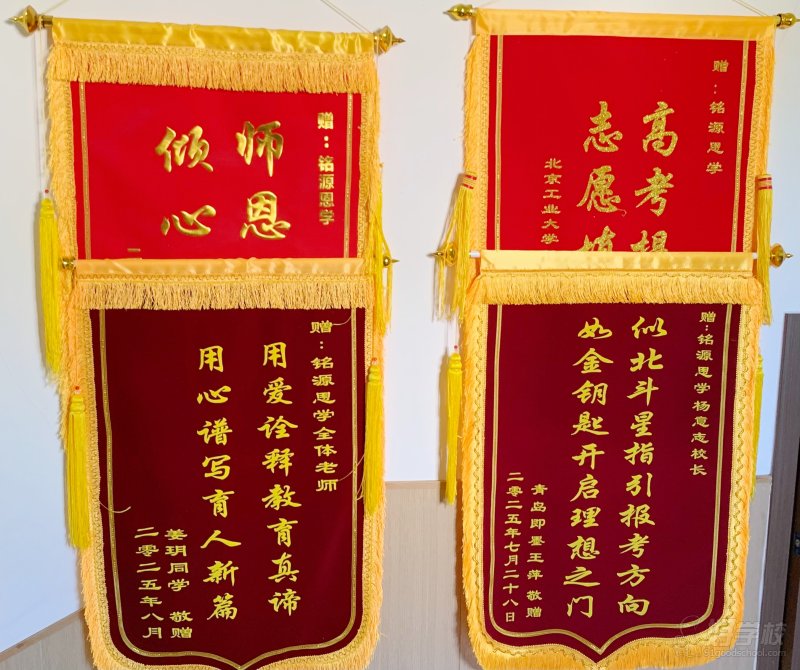 赠：铭源恩学
师恩
倾心
赠：铭源恩学
高考
志愿
北京工业大学
赠：铭源恩学全体老师
用爱诠释教育真谛
用心谱写育人新篇
姜玥同学 敬赠
二零二五年八月
赠：铭源恩学杨意志校长
似北斗星指引报考方向
如金钥匙开启理想之门
青岛即墨王萍 敬赠
二零二五年七月二十八日